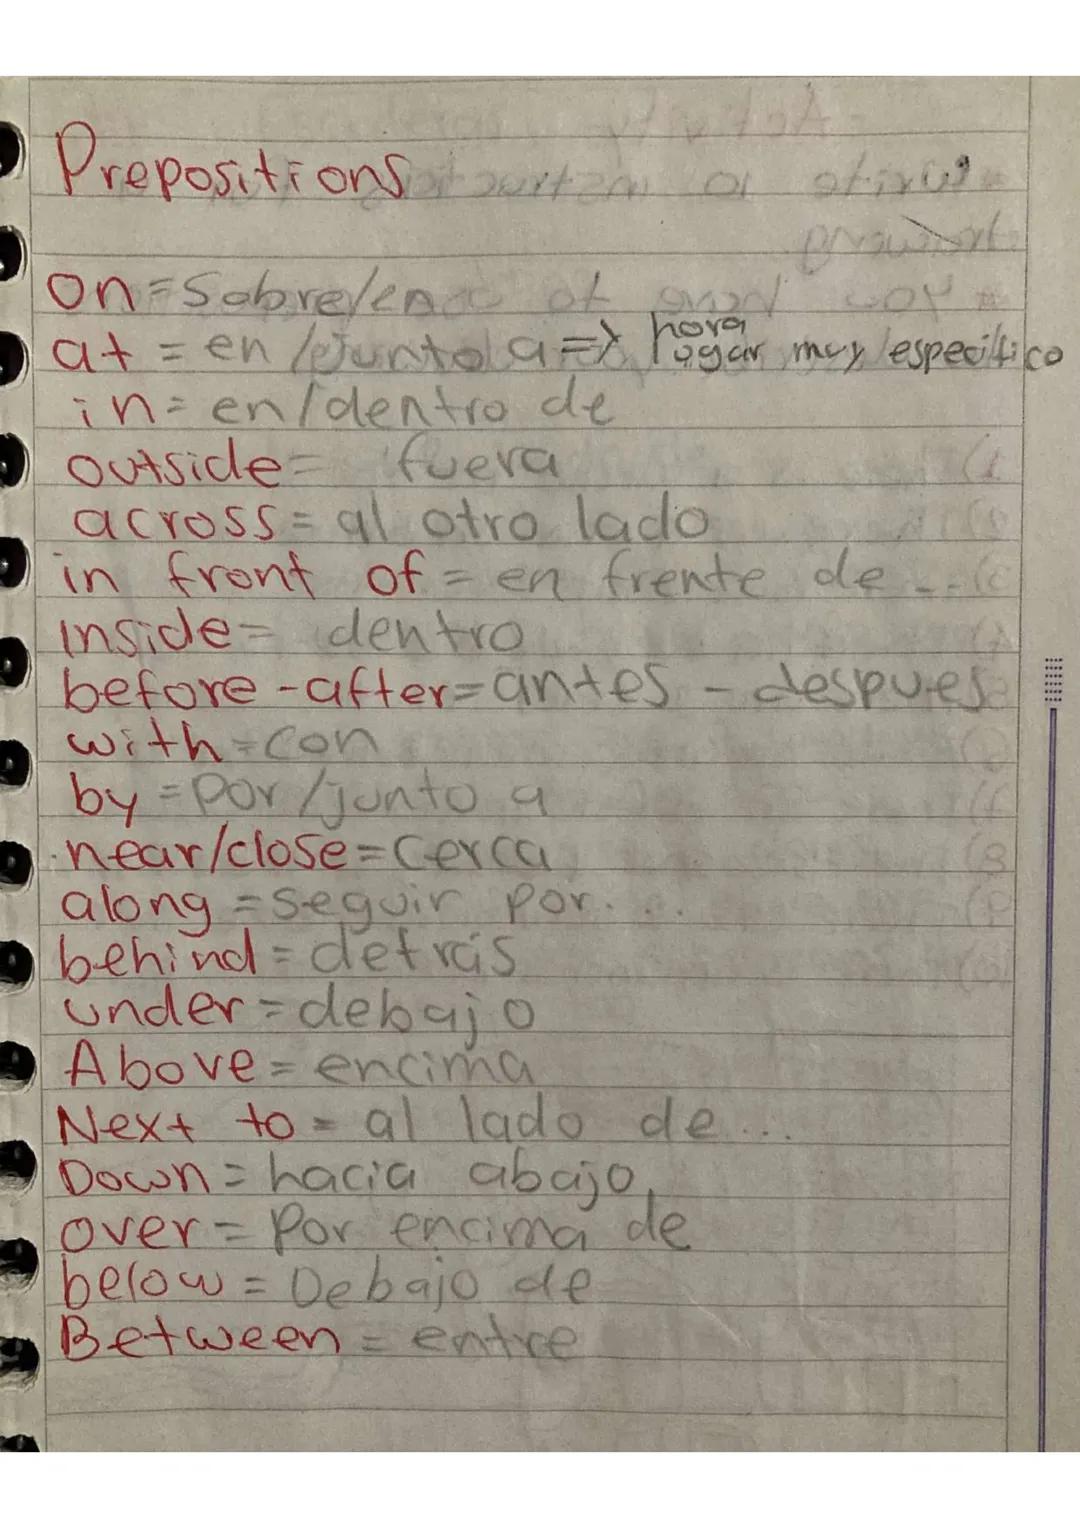 Prepositions
on=Sobre/en
at = en /junto a => hora lugar muy especifico
in= en/dentro de
outside= fuera
across= al otro lado
in front of = en frente de ...
Inside= dentro
before - after= antes - despues
with = con
by = por /junto a
near/close = Cerca
along = seguir por...
behind = detrás
under = debajo
Above = encima
Next to = al lado de ...
Down = hacia abajo
over = Por encima de
below = Debajo de
Between = entre